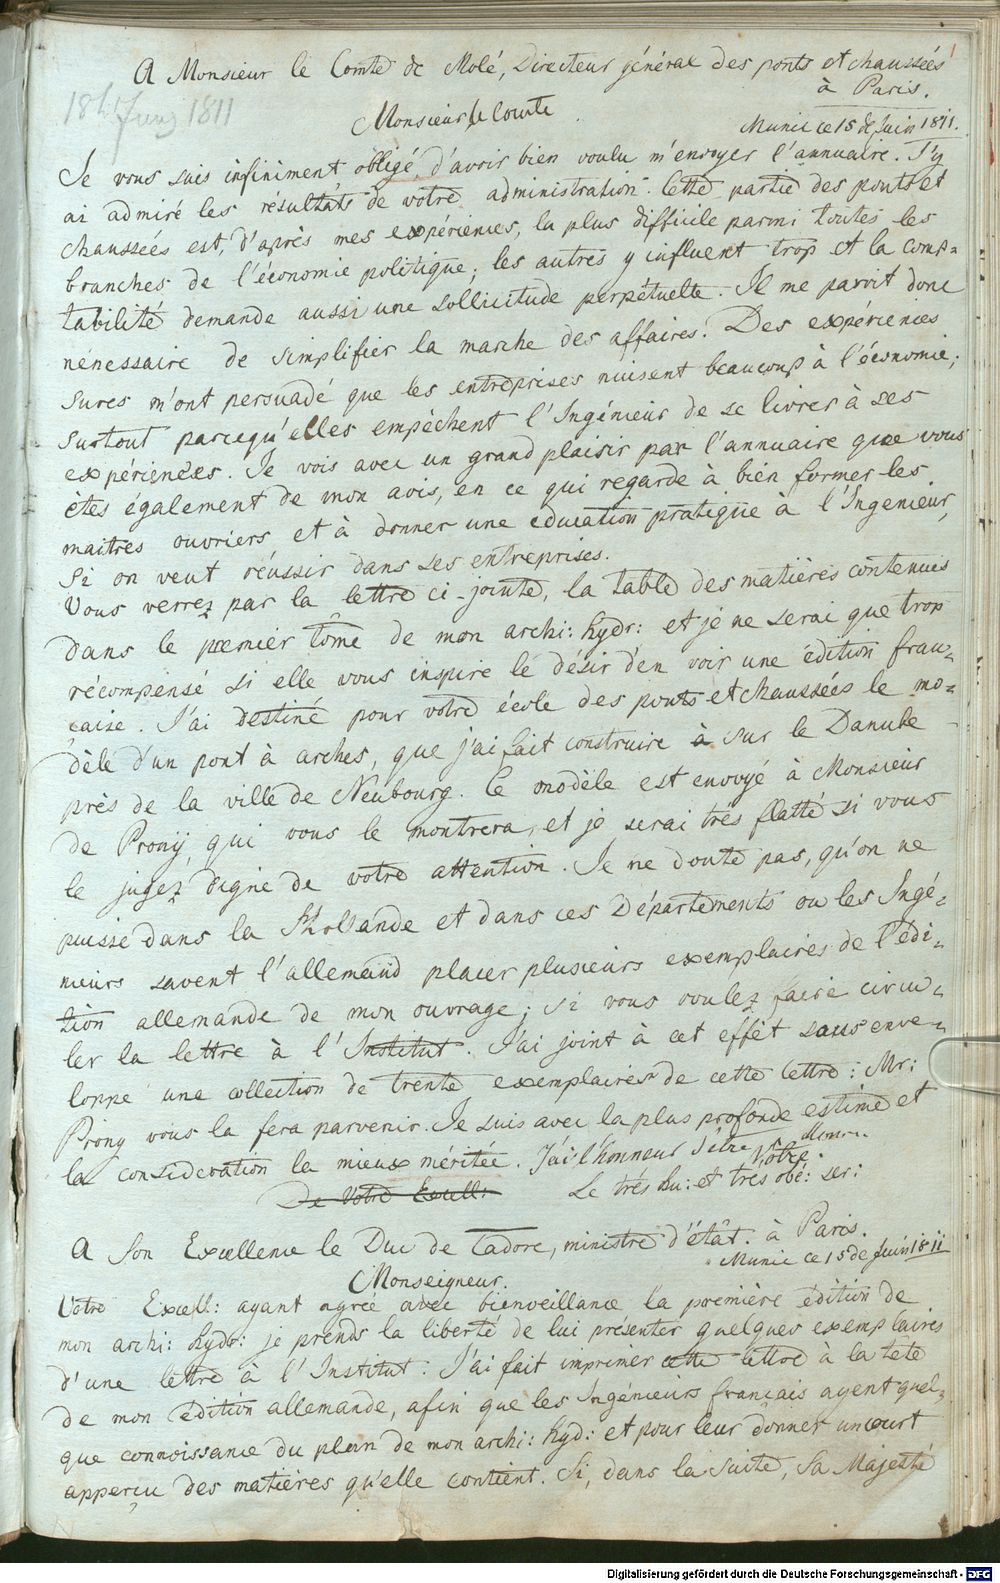 A Monsieur le Comte de Molé, Directeur général des ponts et chaussées
1
à Paris.
18t Juny 1811
Monsieur le Comte
Munic ce 15 de Juin 1811.
Je vous suis infiniment obligé, d'avoir bien voulu m'envoyer l'annuaire. J'y
ai admiré les résultats de votre administration. Cette partie des ponts et
chaussées est d'après mes expériences, la plus difficile parmi toutes les
branches de l'économie politique; les autres y influent trop et la comp-
tabilité demande aussi une sollicitude perpétuelle. Il me paroit donc
nénessaire de simplifier la marche des affaires. Des expériences
sures m'ont persuadé que les entreprises nuisent beaucoup à l'économie;
surtout parcequ'elles empèchent l'Ingénieur de se livrer à ses
expériences. Je vois avec un grand plaisir par l'annuaire que vous
ètes également de mon avis, en ce qui regarde à bien former les
maitres ouvriers et à donner une education pratique à l'Ingenieur,
si on veut réussir dans ses entreprises.
Vous verrez par la lettre ci-jointe, la table des matières contenues
dans le premier tome de mon archi: hydr: et je ne serai que trop
récompensé si elle vous inspire le désir d'en voir une édition fran-
çaise. J'ai destiné pour votre école des ponts et chaussées le mo-
dèle d'un pont à arches, que j'ai fait construire à sur le Danube
près de la ville de Neubourg. Ce modèle est envoyé à Monsieur
de Prony, qui vous le montrera, et je serai très flatté si vous
le jugez digne de votre attention. Je ne doute pas, qu'on ne
puisse dans la Hollande et dans ces Départements ou les Ingé-
nieurs savent l'allemand placer plusieurs exemplaires de l'édi-
tion allemande de mon ouvrage; si vous voulez faire circu-
ler la lettre à l'Institut. J'ai joint à cet effèt sous enve-
loppe une collection de trente exemplaires de cette lettre: Mr:
Prony vous la fera parvenir. Je suis avec la plus profonde estime et
la consideration la mieux méritée. J'ai l'honneur d'être Votre
De Votre Excell:
Le très hu: et très obé: ser:
A Son Excellence le Duc de Cadore, ministre d'état. à Paris.
Munic ce 15 de Juin 1811
Monseigneur.
Votre Excell: ayant agréé avec bienveillance la première édition de
mon archi: hydr: je prends la liberté de lui présenter quelques exemplaires
d'une lettre à l'Institut: J'ai fait imprimer cette lettre à la tete
de mon édition allemande, afin que les Ingénieurs français ayent quel-
que connoissance du plan de mon archi: hyd: et pour leur donner un court
apperçu des matières qu'elle contient. Si, dans la suite, Sa Majesté
Digitalisierung gefördert durch die Deutsche Forschungsgemeinschaft - DFG